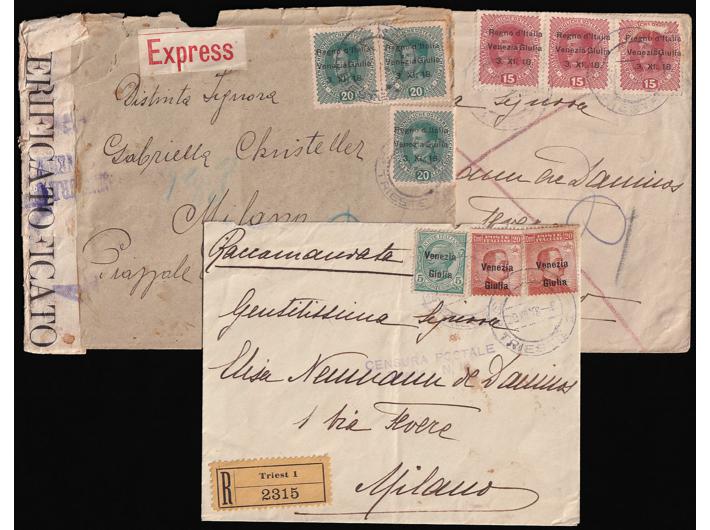 Express
VERIFICATO
Distinta Signora
Gabriella Christeller
Milano
Piazzale
Regno d'Italia
Venezia Giulia
3. XI. 18.
20
Regno d'Italia
Venezia Giulia
3. XI. 18.
20
Regno d'Italia
Venezia Giulia
3. XI. 18.
20
TRIESTE
Regno d'Italia
Venezia Giulia
3. XI. 18.
15
Regno d'Italia
Venezia Giulia
3. XI. 18.
15
Regno d'Italia
Venezia Giulia
3. XI. 18.
15
Signora
mann de Daninos
Raccomandata
Venezia
Giulia
5 5
POSTE 20
Venezia
Giulia
POSTE 20
Venezia
Giulia
TRIESTE
Gentilissima Signora
CENSURA POSTALE
Elisa Neumann de Daninos
1 Via Revere
Milano
R
Triest 1
2315